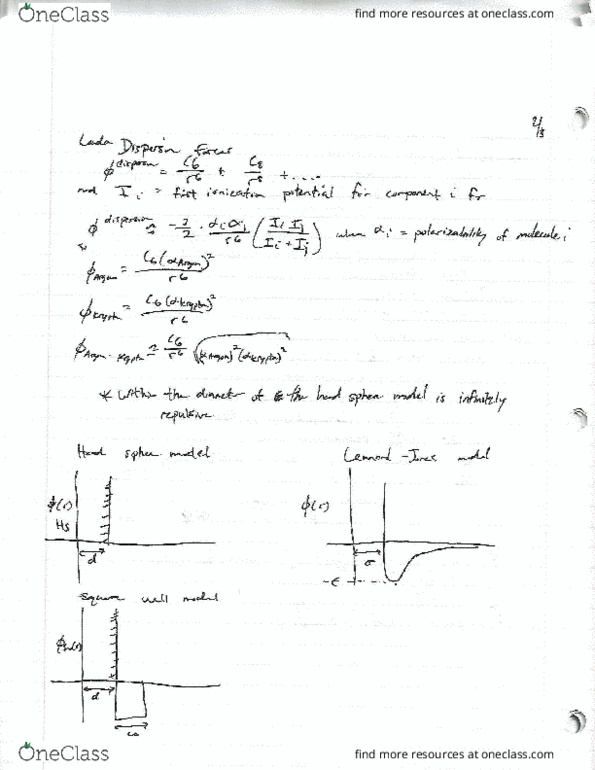 OneClass
find more resources at oneclass.com
2/3
Dispersion Forces
ϕ^dispersion = C6/r6 + C8/r8 + ....
and I i = first ionization potential for component i for
ϕ^dispersion ≈ -3/2 · αiαj/r6 (Ii Ij/Ii+Ij) when αi = polarizability of molecule i
so
ϕArgon = C6(αArgon)²/r6
ϕKrypton = C6(αKrypton)²/r6
ϕArgon-Krypton ≈ C6/r6 √(αArgon)²(αKrypton)²
* Within the diameter of the hard sphere model is infinitely
repulsive
Hard sphere model
Lennard-Jones model
ϕ(r)
HS
d
ϕ(r)
σ
-ε
Square well model
d
ω
OneClass
find more resources at oneclass.com